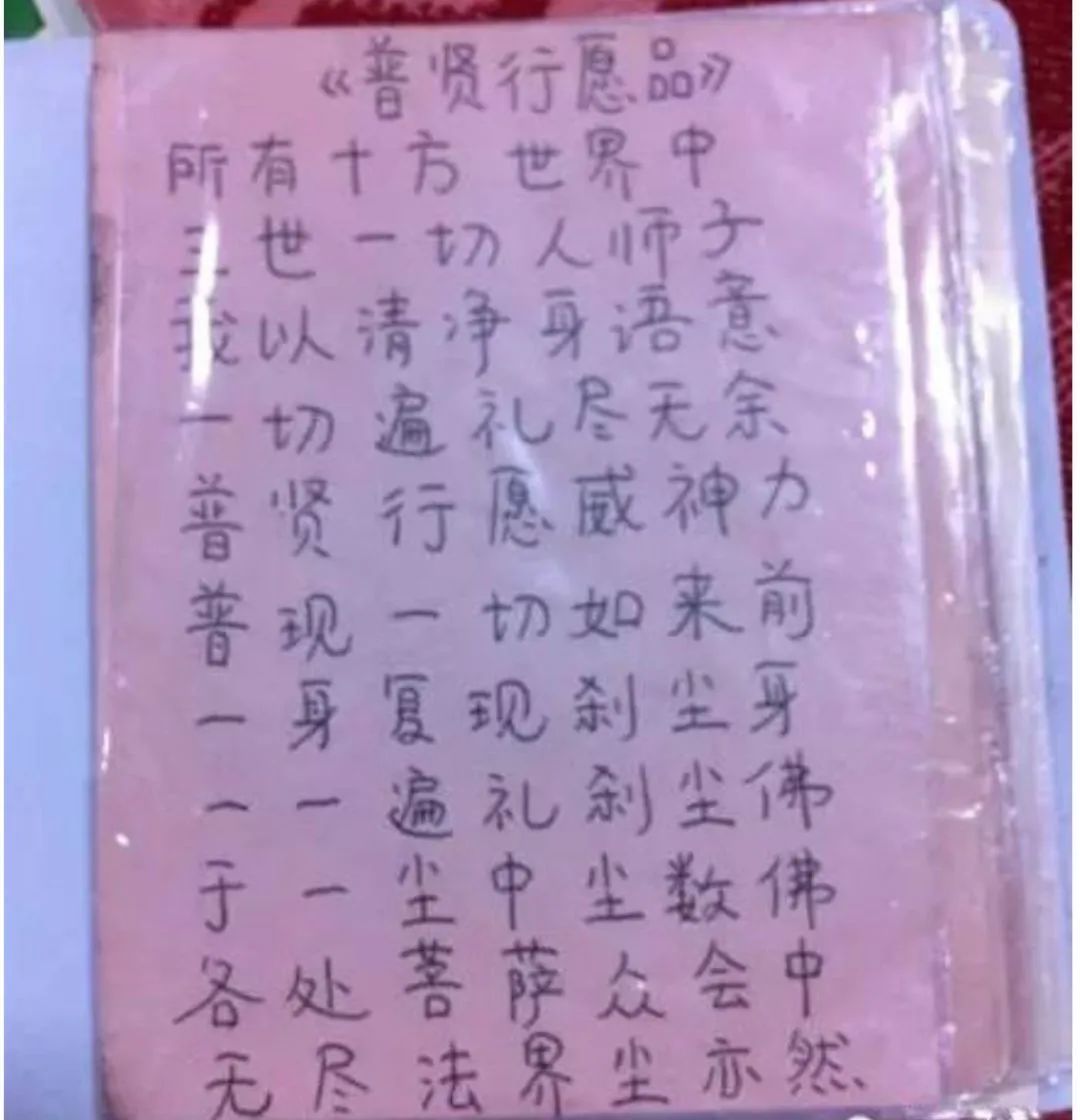 《普贤行愿品》
所有十方世界中
三世一切人师子
我以清净身语意
一切遍礼尽无余
普贤行愿威神力
普现一切如来前
一身复现刹尘身
一一遍礼刹尘佛
于一尘中尘数佛
各处菩萨众会中
无尽法界尘亦然